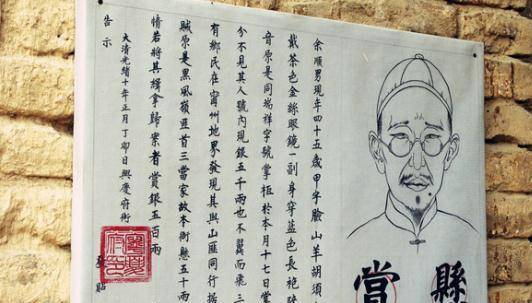 懸賞
余順男現年四十五歲甲字臉山羊胡須
戴茶色金絲眼鏡一副身穿藍色長袍
音原是同瑞祥字號掌柜於本月十七日當
分不見其人號內現銀五千兩也不翼而飛三
有鄉民在甯州地界發現其與山匪同行據
賊原是黑風嶺匪首三當家故本衙懸五十兩
情若將其緝拿歸案者賞銀五百兩
大清光緒十年正月丁卯日興慶府衙
告示